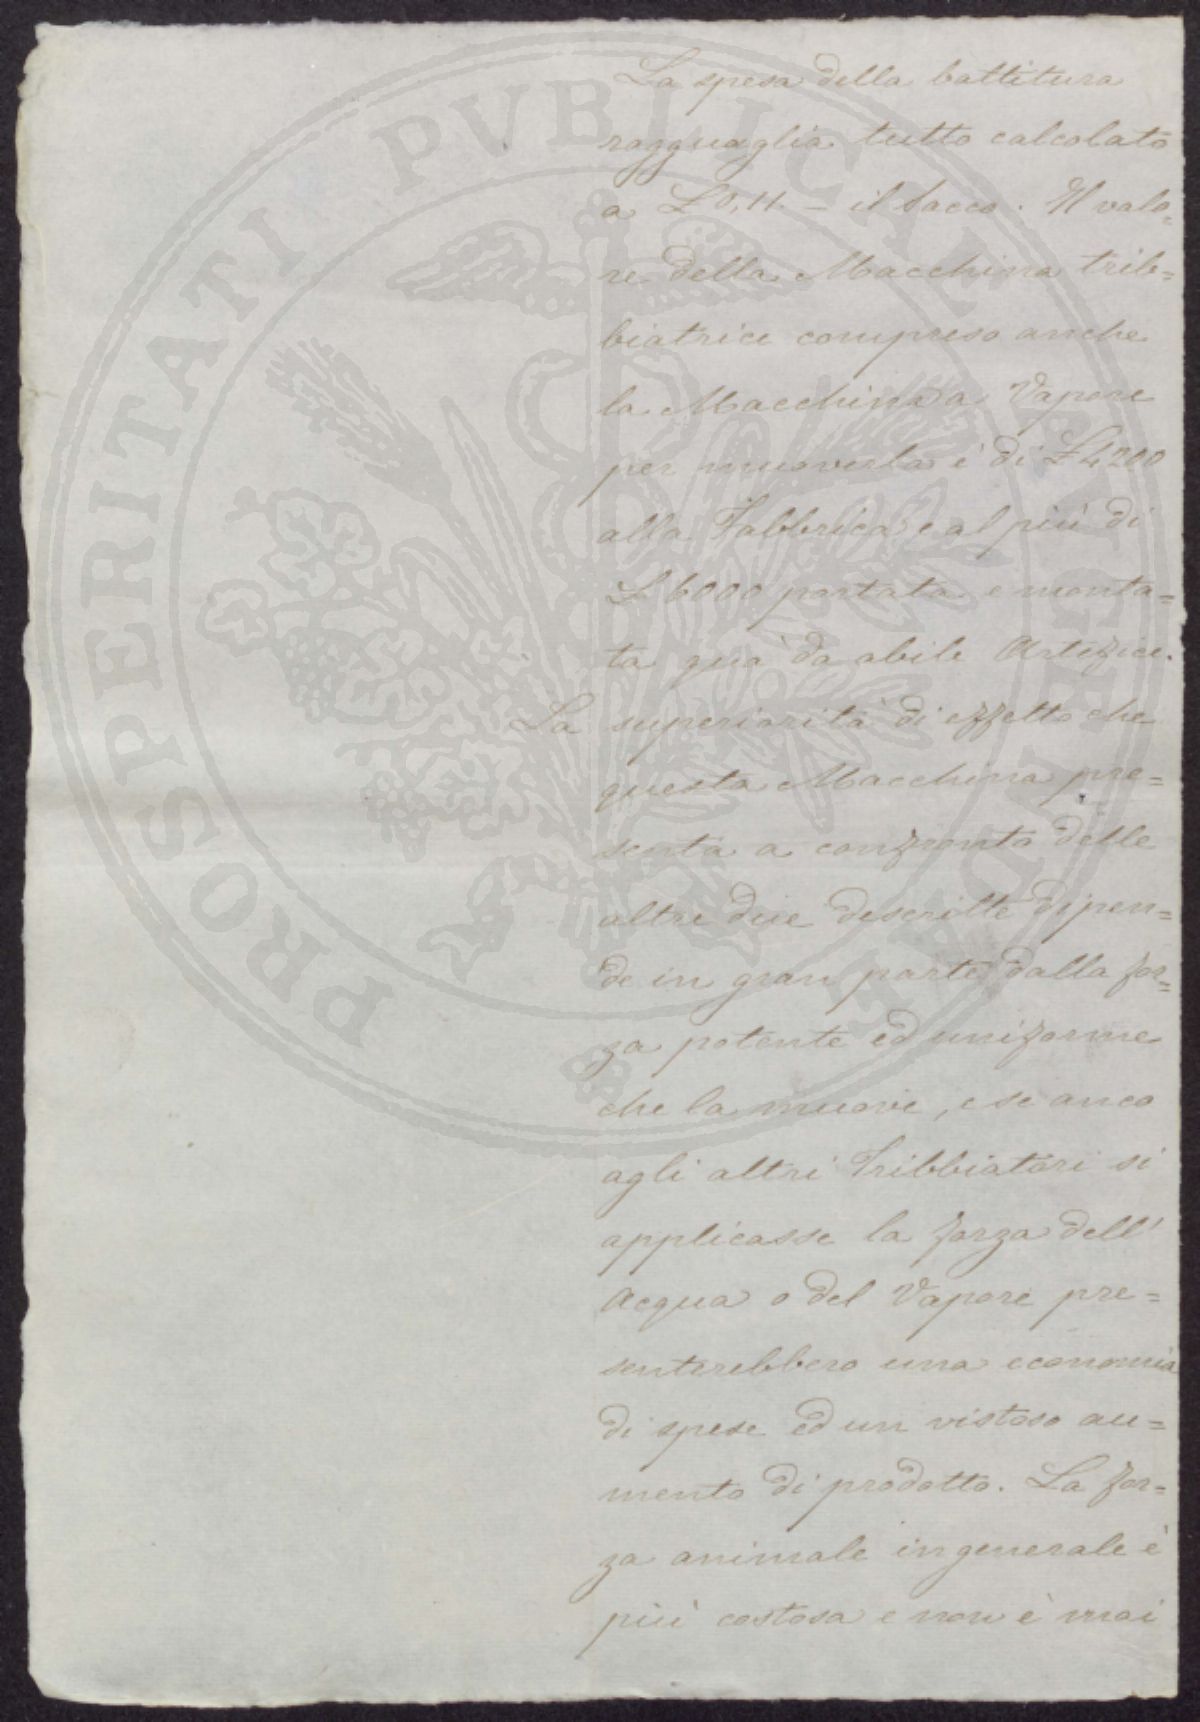 La spesa della battitura
ragguaglia tutto calcolato
a £ 0,11. — il Sacco. Il valo=
re della Macchina treb=
biatrice compreso anche
la Macchina a Vapore
per muoverla è di £ 4200
alla Fabbrica e al più di
£ 6000 portata e monta=
ta quà da abile Artefice.
La superiorità di effetto che
questa Macchina pre=
senta a confronto delle
altre due descritte dipen=
de in gran parte dalla for=
za potente ed uniforme
che la muove, e se anco
agli altri Tribbiatori si
applicasse la forza dell'
Acqua o del Vapore pre=
senterebbero una economia
di spese ed un vistoso au=
mento di prodotto. La for=
za animale in generale è
più costosa e non è mai
PROSPERITATI PVBLICAE AVGENDAE